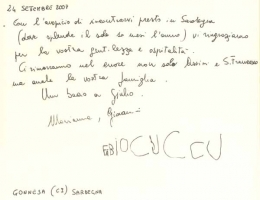 24 SETTEMBRE 2007
Con l'auspicio di rincontrarvi presto in Sardegna
(dove splende il sole 10 mesi l'anno) vi ringraziamo
per la vostra gentilezza e ospitalità.
Ci rimarranno nel cuore non solo Assisi e S. Francesco
ma anche la vostra famiglia.
Un bacio a Giulio.
Marianna, Giovanni
GONNESA (CI) SARDEGNA